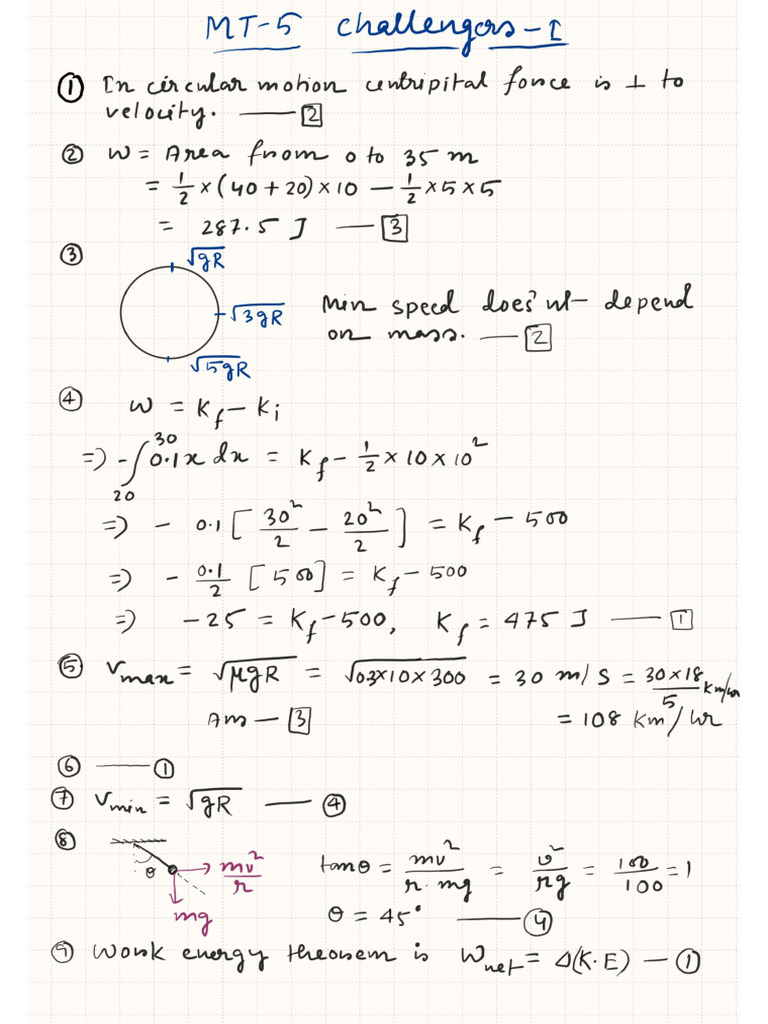 MT-5 Challengers-I
① In circular motion centripital force is ⊥ to
velocity. —— [2]
② W = Area from 0 to 35 m
= 1/2 × (40 + 20) × 10 − 1/2 × 5 × 5
= 287.5 J —— [3]
③ √gR
√3gR
√5gR
Min speed does'nt depend
on mass. —— [2]
④ W = K_f − K_i
⇒ −∫_20^30 0.1x dx = K_f − 1/2 × 10 × 10^2
⇒ − 0.1 [ 30^2/2 − 20^2/2 ] = K_f − 500
⇒ − 0.1/2 [500] = K_f − 500
⇒ −25 = K_f − 500, K_f = 475 J —— [1]
⑤ V_max = √μgR = √0.3×10×300 = 30 m/s = 30×18/5 Km/hr
Ans — [3] = 108 Km/hr
⑥ —— ①
⑦ V_min = √gR —— ④
⑧ θ mv^2/r mg
tanθ = mv^2/r.mg = v^2/rg = 100/100 = 1
θ = 45° —— ④
⑨ Work energy theorem is W_net = Δ(K.E) — ①